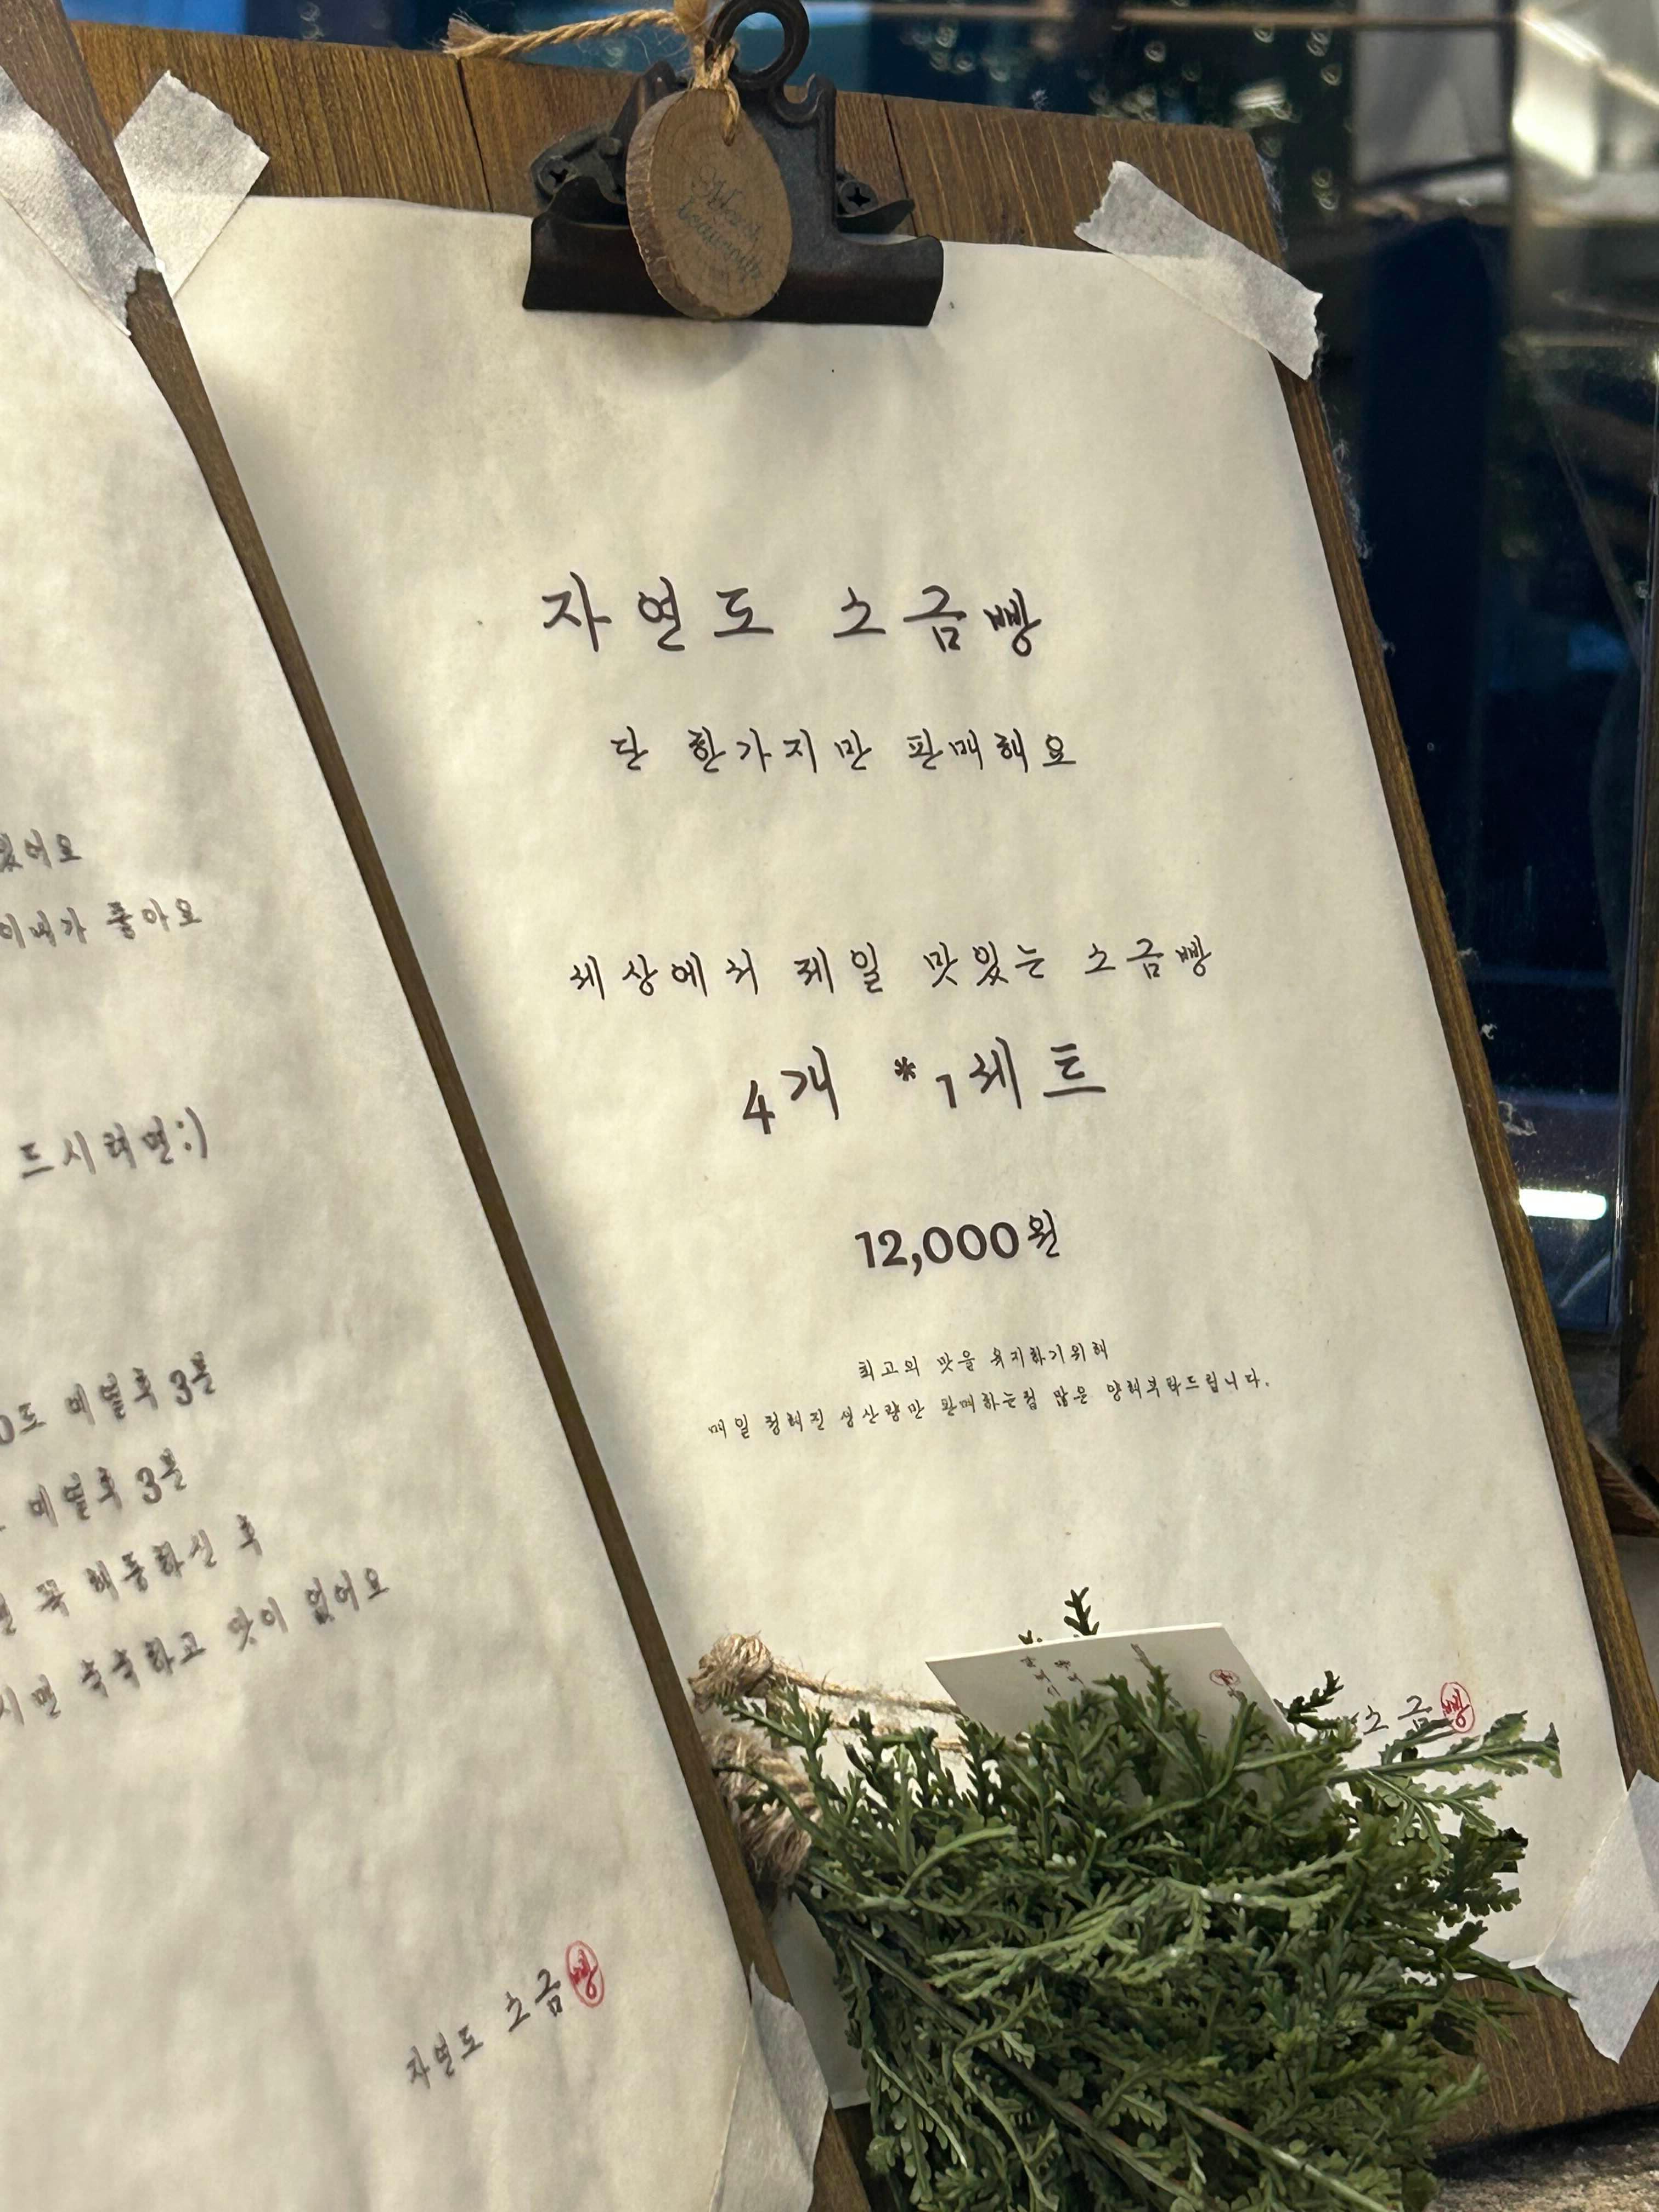 없어요
이내가 좋아요
드시려면:)
0도 예열후 3분
예열후 3분
꼭 해동하신 후
시면 축축하고 맛이 없어요
자연도 소금빵
자연도 소금빵
단 한가지만 판매해요
세상에서 제일 맛있는 소금빵
4개 *1세트
12,000원
최고의 맛을 유지하기위해
매일 정해진 생산량만 판매하는점 많은 양해부탁드립니다.
소금빵